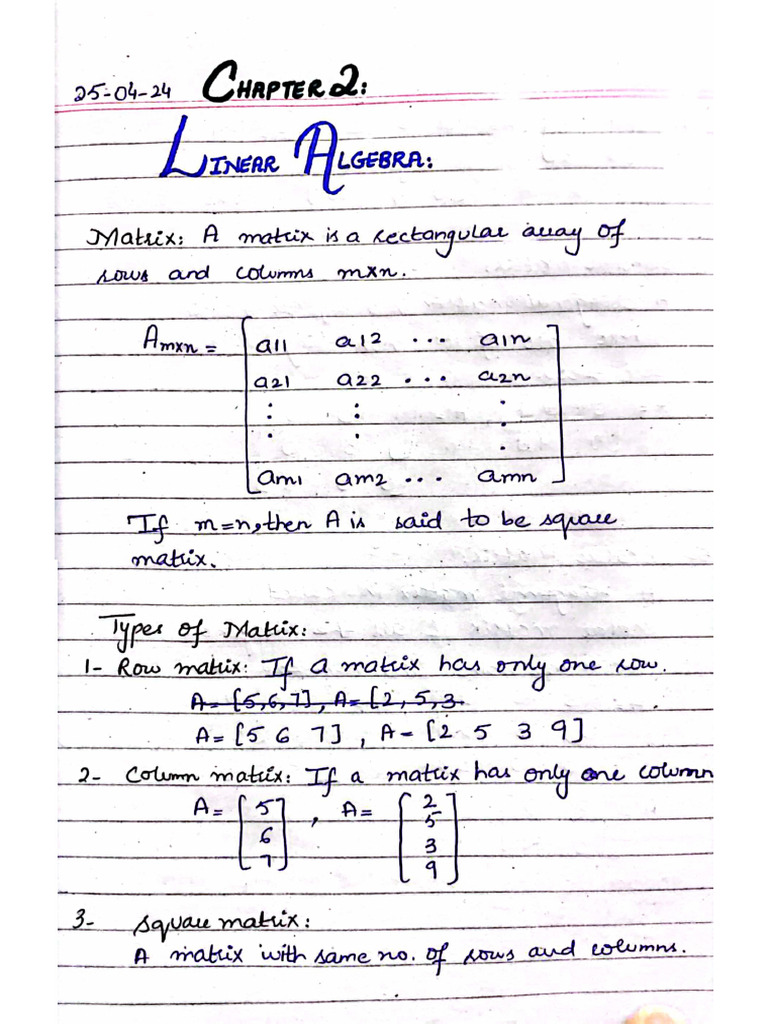 25-04-24 CHAPTER 2:
LINEAR ALGEBRA:
Matrix: A matrix is a rectangular array of
rows and columns m×n.
Am×n = [ a11 a12 ... a1n
a21 a22 ... a2n
: : :
: : .
am1 am2 ... amn ]
If m=n, then A is said to be square
matrix.
Types of Matrix:
1- Row matrix: If a matrix has only one row.
A= [5,6,7], A= [2,5,3
A= [5 6 7] , A- [2 5 3 9]
2- Column matrix: If a matrix has only one column
A= [5 , A= [2
6 5
7] 3
9]
3- square matrix:
A matrix with same no. of rows and columns.